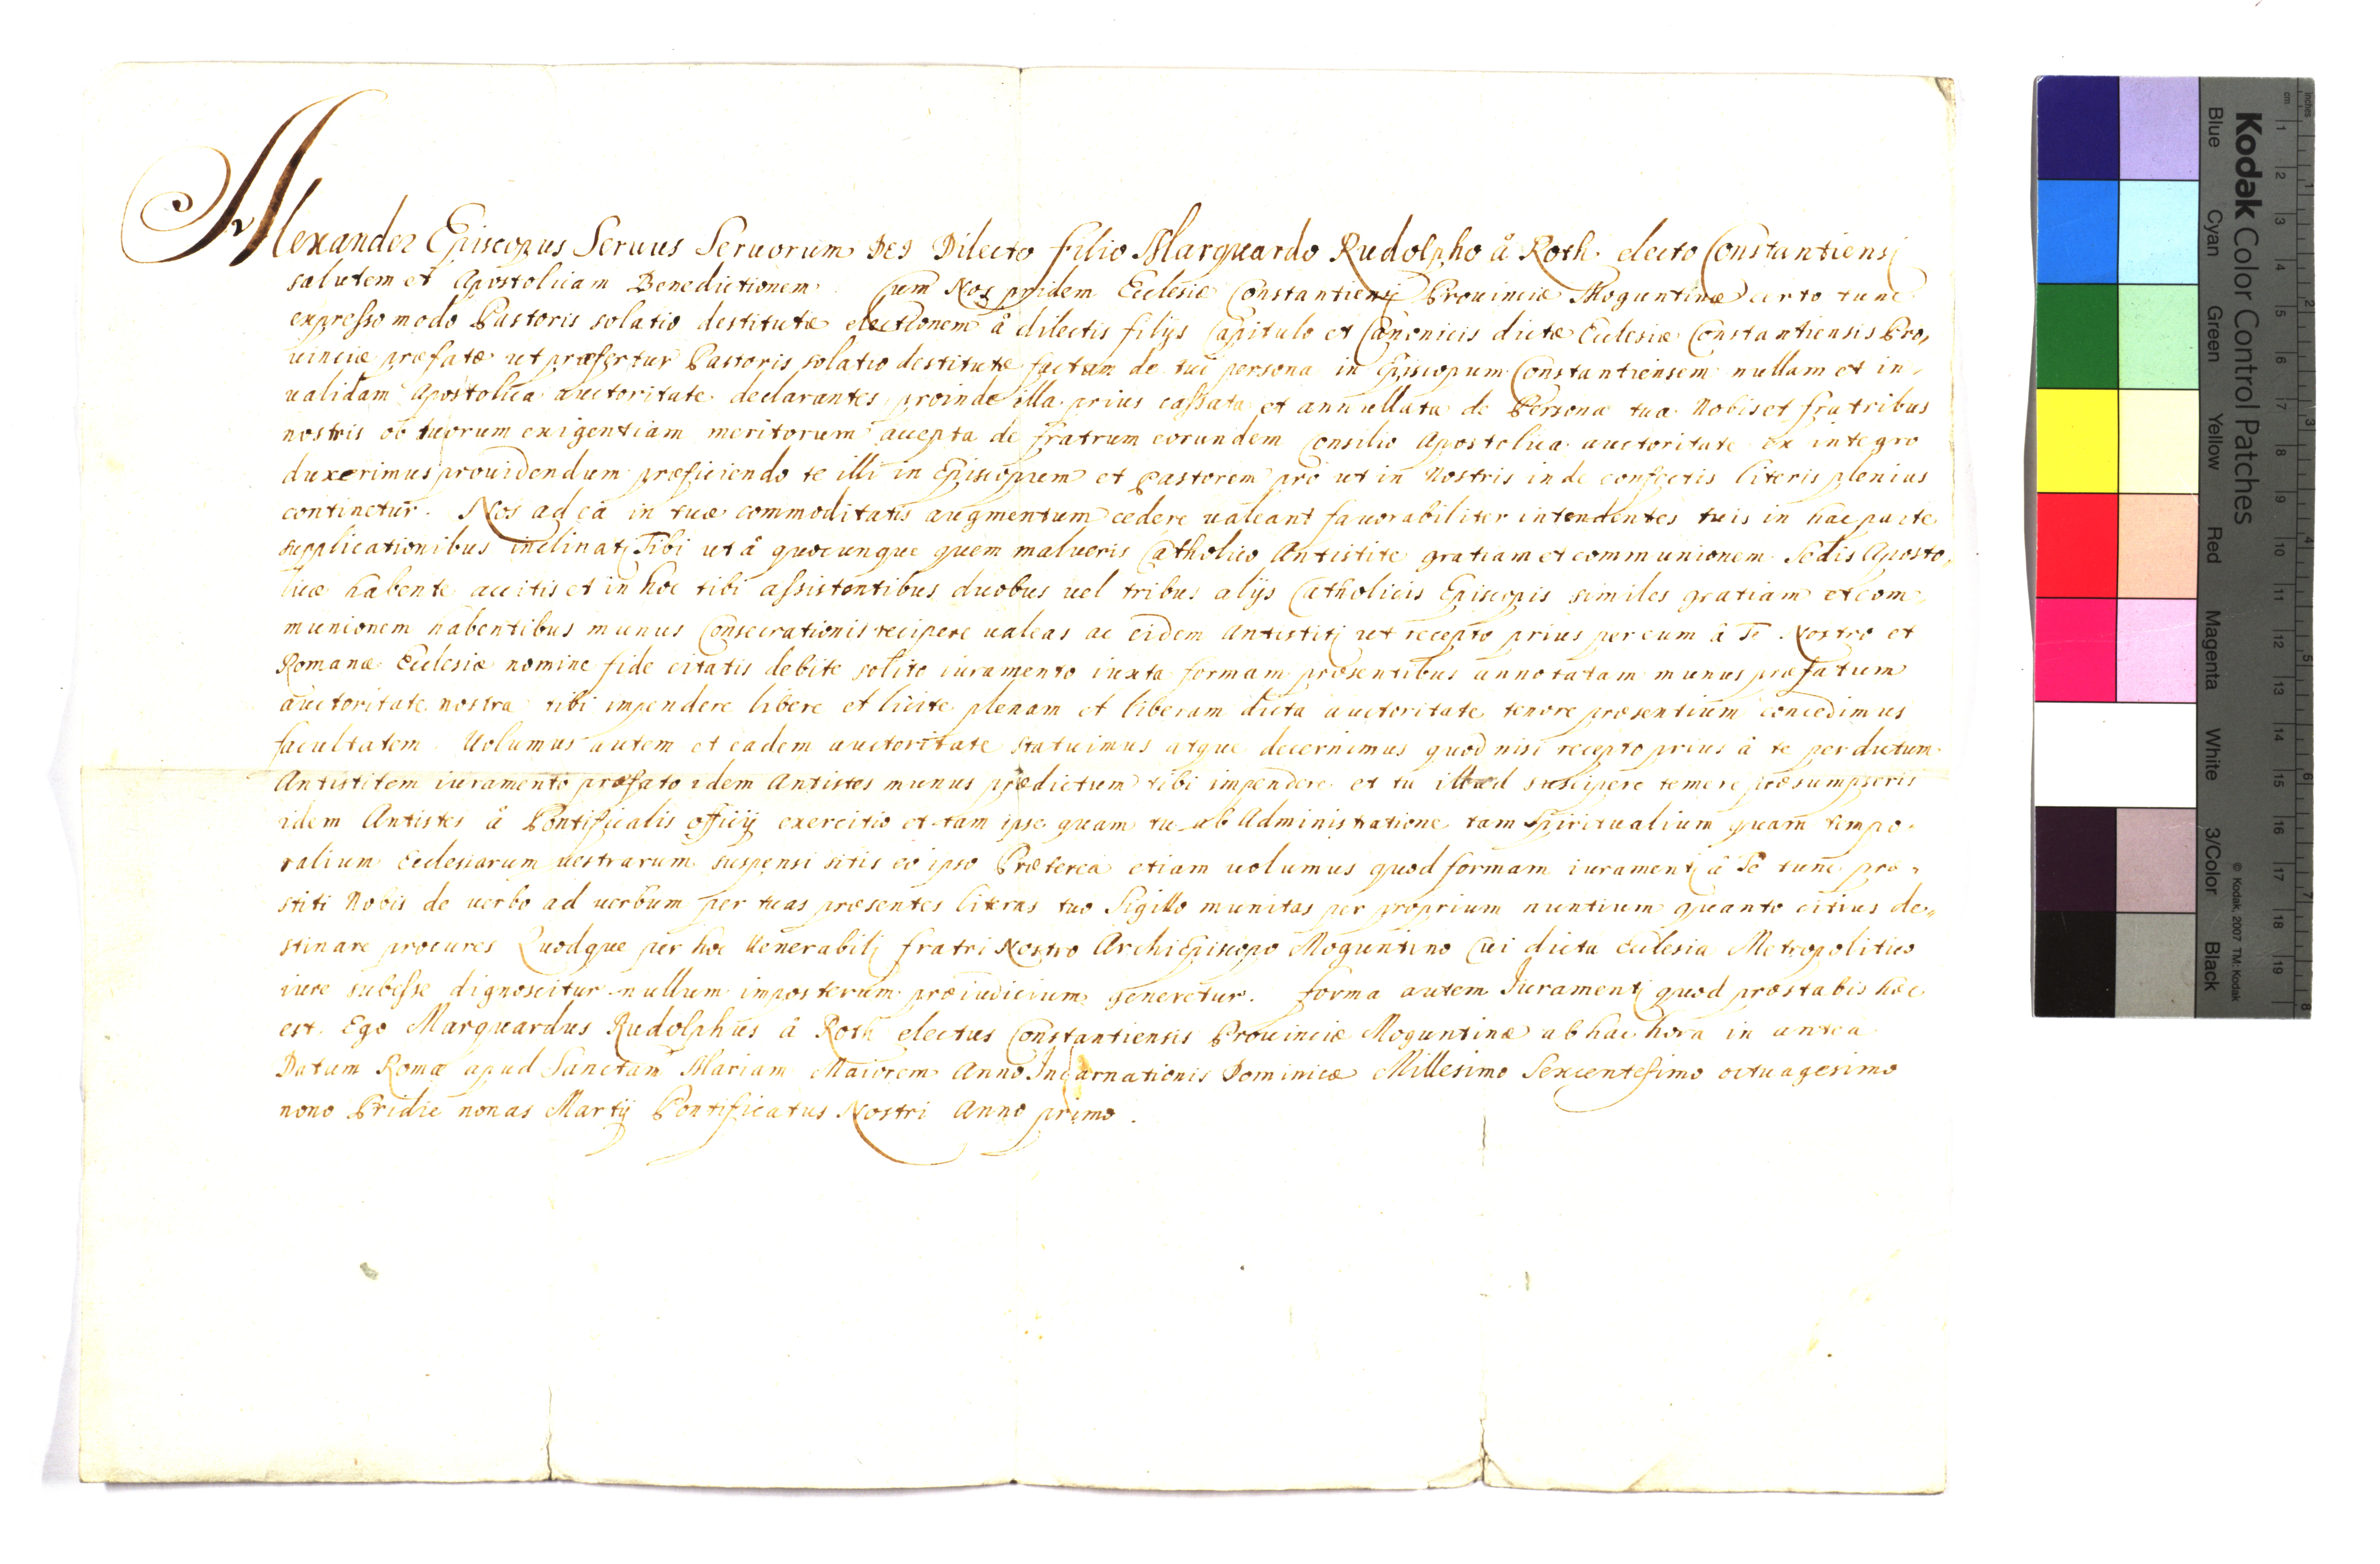 Alexander Episcopus Seruus Seruorum Dei Dilecto filio Marquardo Rudolpho â Roth electo Constantiensi
salutem et Apostolicam Benedictionem. Cum Nos pridem Ecclesiæ Constantiensi Prouinciæ Moguntinæ certo tunc
expresso modo Pastoris solatio destitutæ electionem â dilectis filijs Capitulo et Canonicis dictæ Ecclesiæ Constantiensis Pro,
uinciæ præfatæ ut præfertur Pastoris solatio destitutæ factam de tui persona in Episcopum Constantiensem nullam et in,
ualidam Apostolica auctoritate declarantes proinde illa prius cassata et annullata de Persona tua Nobis et fratribus
nostris ob tuorum exigentiam meritorum accepta de fratrum eorundem Consilio Apostolica auctoritate ex integro
duxerimus prouidendum præficiendo te illi in Episcopum et Pastorem pro ut in Nostris inde confectis literis plenius
continetur. Nos ad ea in tuæ commoditatis augmentum cedere ualeant fauorabiliter intendentes tuis in hac parte
supplicationibus inclinati Tibi ut â quocunque quem malueris Catholico Antistite gratiam et communionem Sedis Aposto,
licæ habente accitis et in hoc tibi assistentibus duobus uel tribus alijs Catholicis Episcopis similes gratiam et com,
munionem habentibus munus Consecrationis recipere ualeas ac eidem Antistiti ut recepto prius per eum â Te Nostro et
Romanæ Ecclesiæ nomine fide citatis debite solito iuramento iuxta formam præsentibus annotatam munus præfatum
auctoritate nostra tibi impendere libere et licite plenam et liberam dicta auctoritate tenore præsentium concedimus
facultatem. Uolumus autem et eadem auctoritate statuimus atque decernimus quod nisi recepto prius â te per dictum
Antistitem iuramento præfato idem Antistes munus prædictum tibi impendere et tu illud suscipere temere præsumpseris
idem Antistes â Pontificalis officij exercitio et tam ipse quam tu ab Administratione tam Spiritualium quam tempo,
ralium Ecclesiarum uestrarum suspensi sitis eo ipso Præterea etiam uolumus quod formam iuramenti â Te tunc præ,
stiti Nobis de uerbo ad uerbum per tuas præsentes literas tuo Sigillo munitas per proprium nuntium quanto citius de,,
stinare procures Quodque per hoc Uenerabili fratri Nostro ArchiEpiscopo Moguntino Cui dicta Ecclesia Metropolitico
iure subesse dignoscitur nullum imposterum præiudicium generetur. Forma autem Iuramenti quod præstabis hæc
est. Ego Marquardus Rudolphus â Roth electus Constantiensis Prouinciæ Moguntinæ ab hac hora in antea
Datum Romæ apud Sanctam Mariam Maiorem Anno Incarnationis Dominicæ Millesimo Sexcentesimo octuagesimo
nono Pridie nonas Martij Pontificatus Nostri Anno primo.
Kodak Color Control Patches
Blue Cyan Green Yellow Red Magenta White 3/Color Black
© Kodak, 2007 TM: Kodak
inches 1 2 3 4 5 6 7 8
cm 1 2 3 4 5 6 7 8 9 10 11 12 13 14 15 16 17 18 19